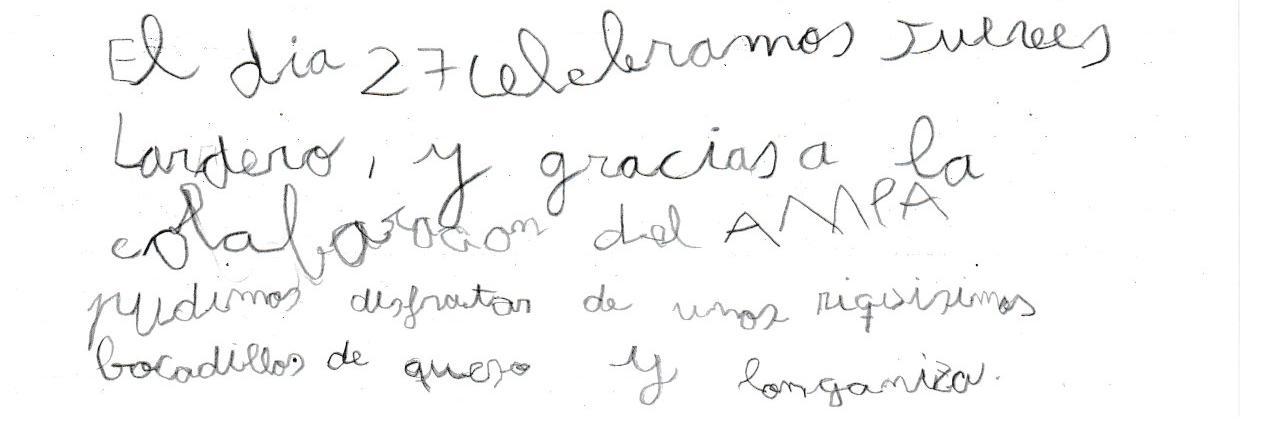 El dia 27 celebramos Jueves
Lardero, y gracias a la
colaboracion del AMPA
pudimos disfrutar de unos riquisimos
bocadillos de queso y longaniza.